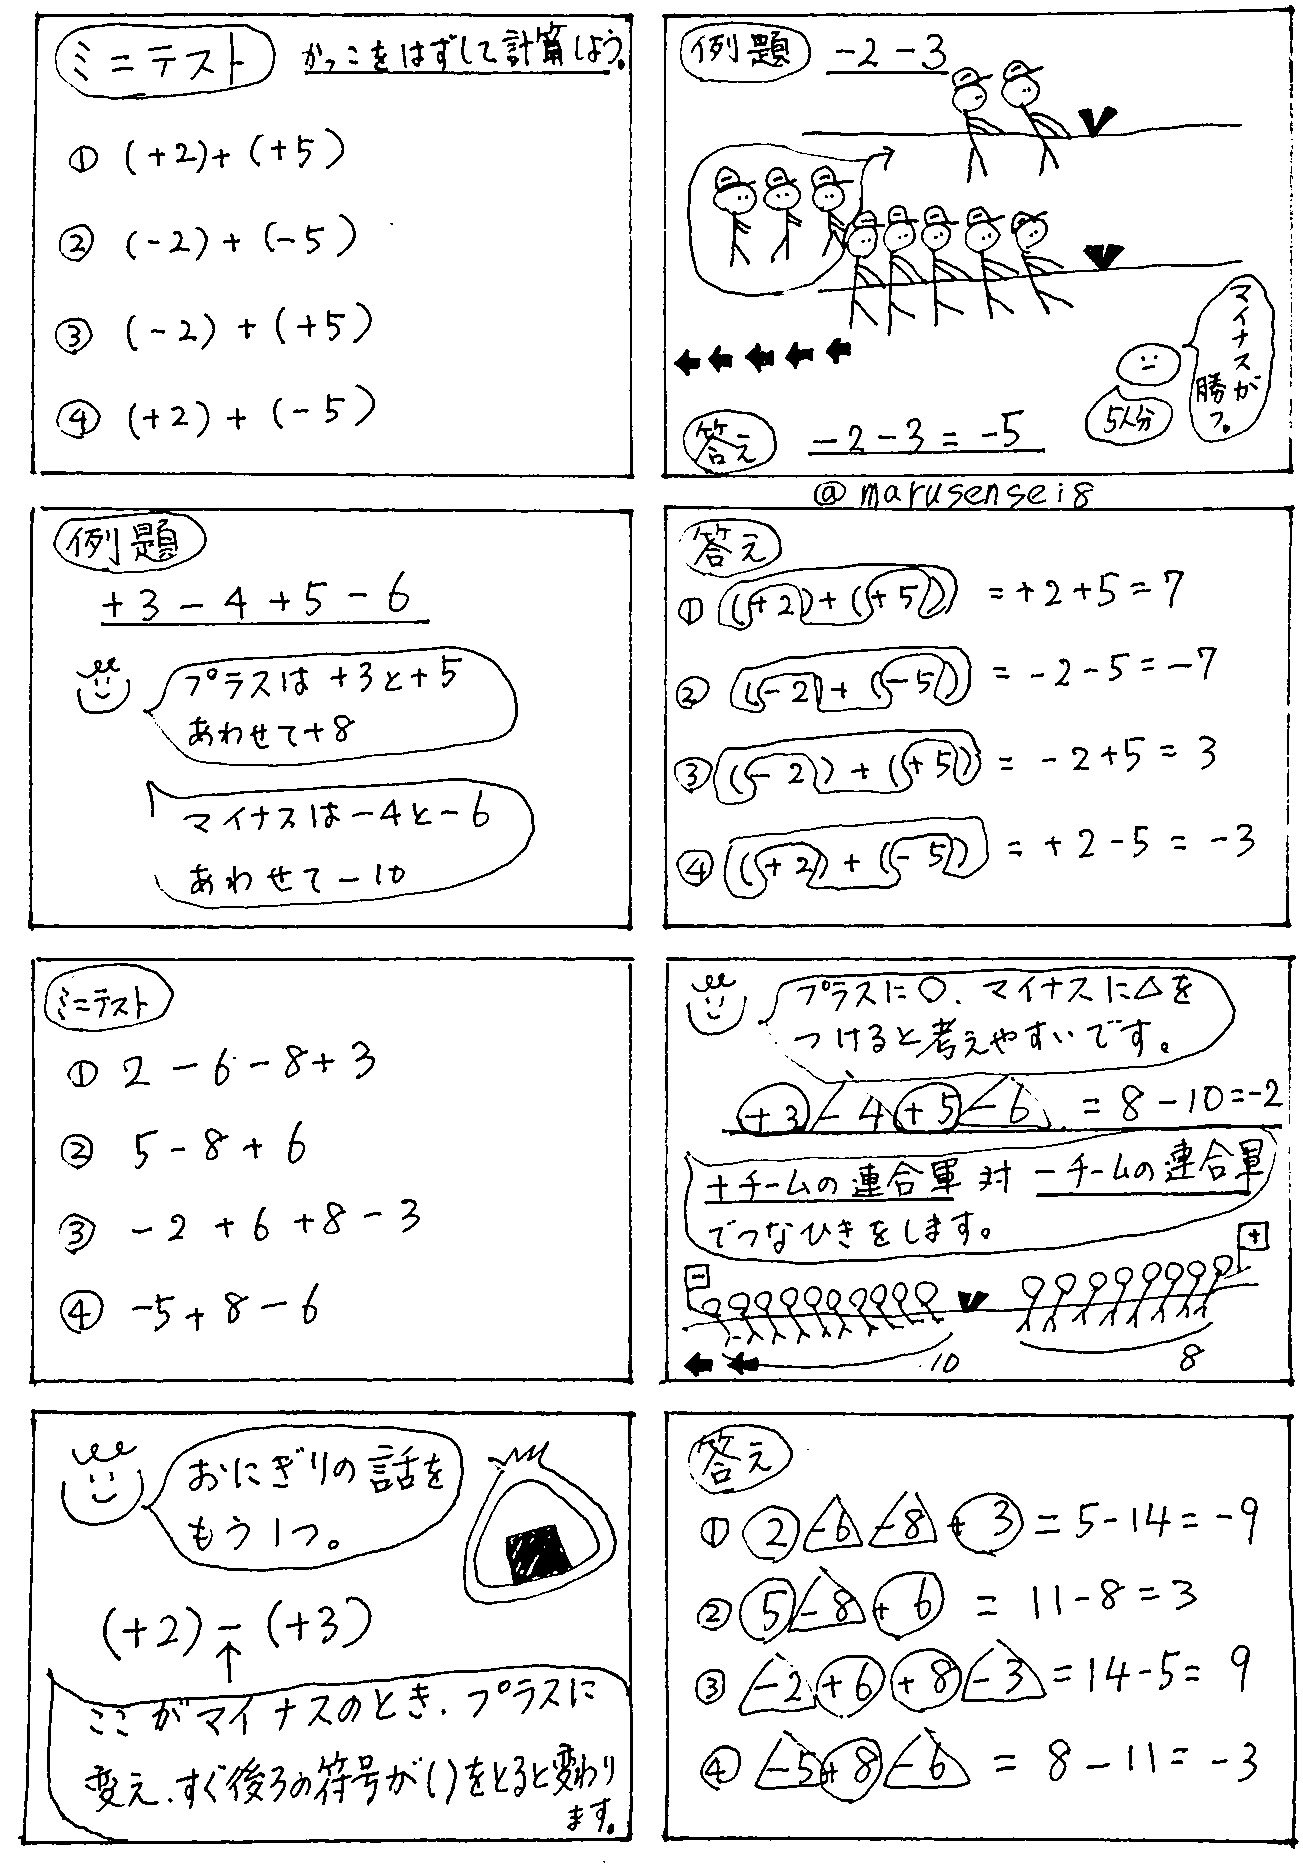 ミニテスト かっこをはずして計算しよう。
① (+2)+(+5)
② (-2)+(-5)
③ (-2)+(+5)
④ (+2)+(-5)
例題 -2-3
マイナスが
勝つ。
5人分
答え -2-3=-5
@marusensei8
例題
+3-4+5-6
プラスは+3と+5
あわせて+8
マイナスは-4と-6
あわせて-10
答え
① (+2)+(+5) =+2+5=7
② (-2)+(-5) =-2-5=-7
③ (-2)+(+5) =-2+5=3
④ (+2)+(-5) =+2-5=-3
ミニテスト
① 2-6-8+3
② 5-8+6
③ -2+6+8-3
④ -5+8-6
プラスに○、マイナスに△を
つけると考えやすいです。
+3-4+5-6 =8-10=-2
+チームの連合軍 対 -チームの連合軍
でつなひきをします。
- +
10 8
おにぎりの話を
もう1つ。
(+2)-(+3)
ここがマイナスのとき、プラスに
変え、すぐ後ろの符号が( )をとると変わり
ます。
答え
① 2-6-8+3=5-14=-9
② 5-8+6=11-8=3
③ -2+6+8-3=14-5=9
④ -5+8-6=8-11=-3